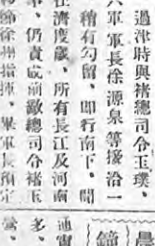 過津時與褚總司令玉璞、
六軍軍長徐源泉等接洽一
稍有勾留、即行南下。聞
在濟度歲、所有長江及河南
事、仍責成前敵總司令褚玉
徐州指揮、畢軍長預定
通
多、
晨
鐘